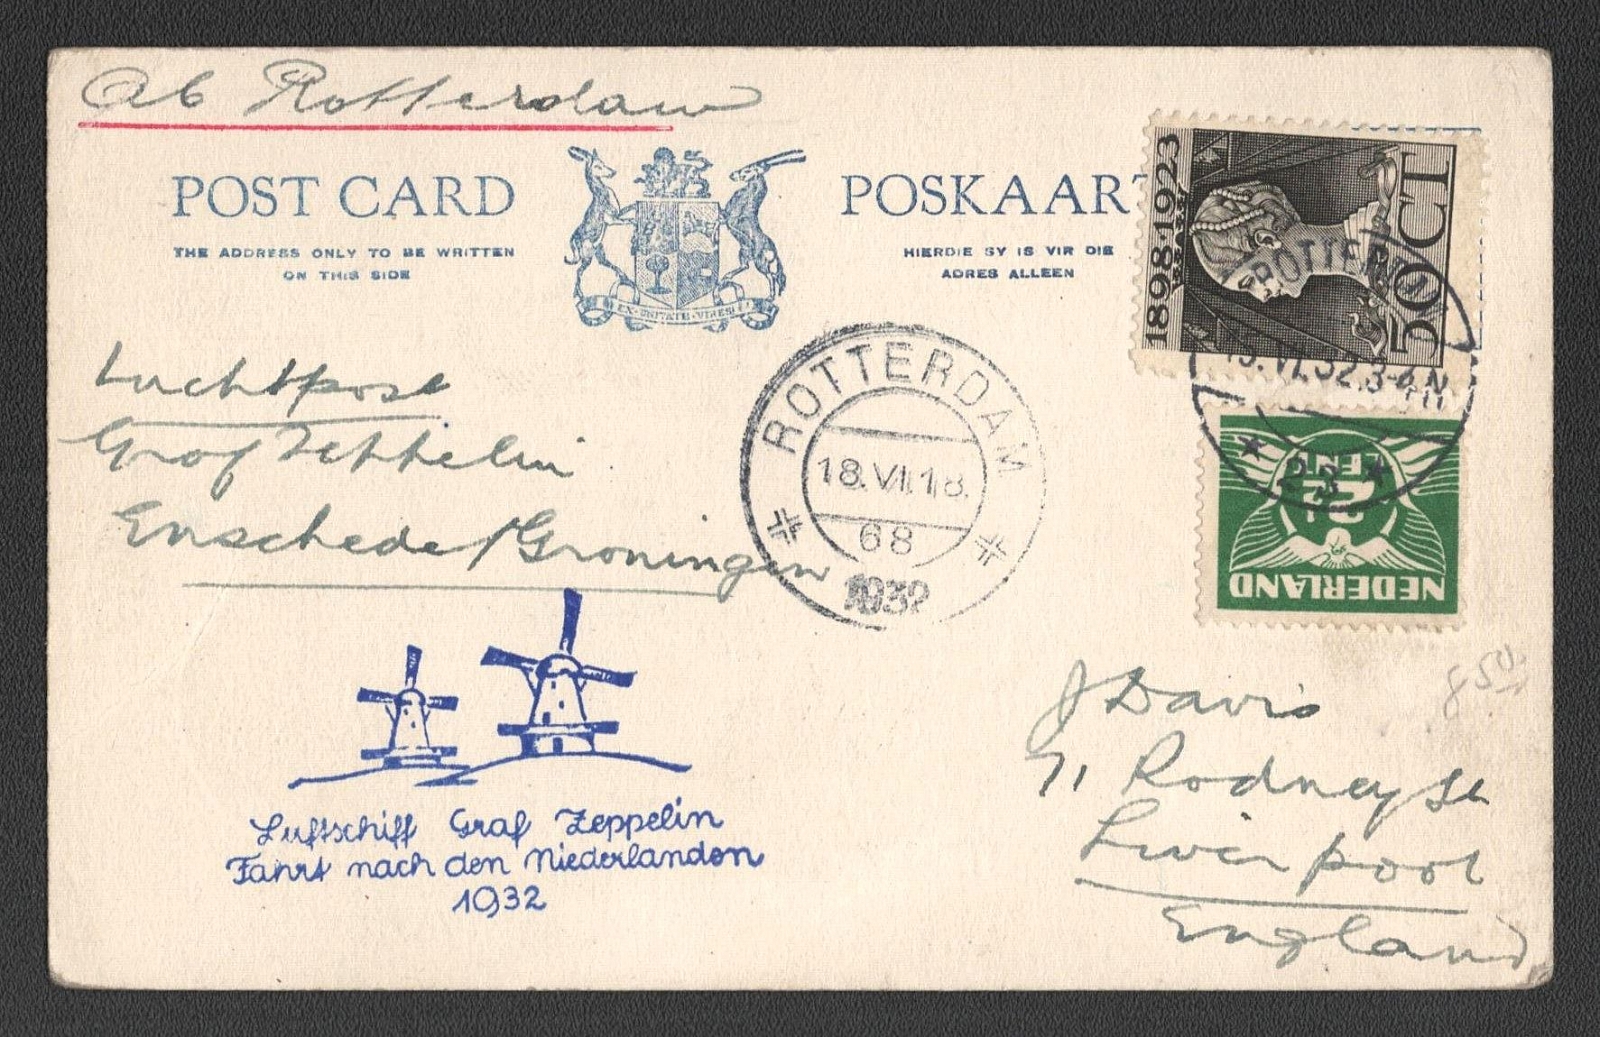 Ab Rotterdam
POST CARD
THE ADDRESS ONLY TO BE WRITTEN
ON THIS SIDE
POSKAART
HIERDIE SY IS VIR DIE
ADRES ALLEEN
EX·UNITATE·VIRES
1898-1923
50 CT
ROTTERD
VI.32.3-4 N
23
CENT
NEDERLAND
ROTTERDAM
18.VI.18.
68
1932
Luchtpost
Graf Zeppelin
Enschede/Groningen
Luftschiff Graf Zeppelin
Fahrt nach den Niederlanden
1932
J Davis
71 Rodney St
Liverpool
England